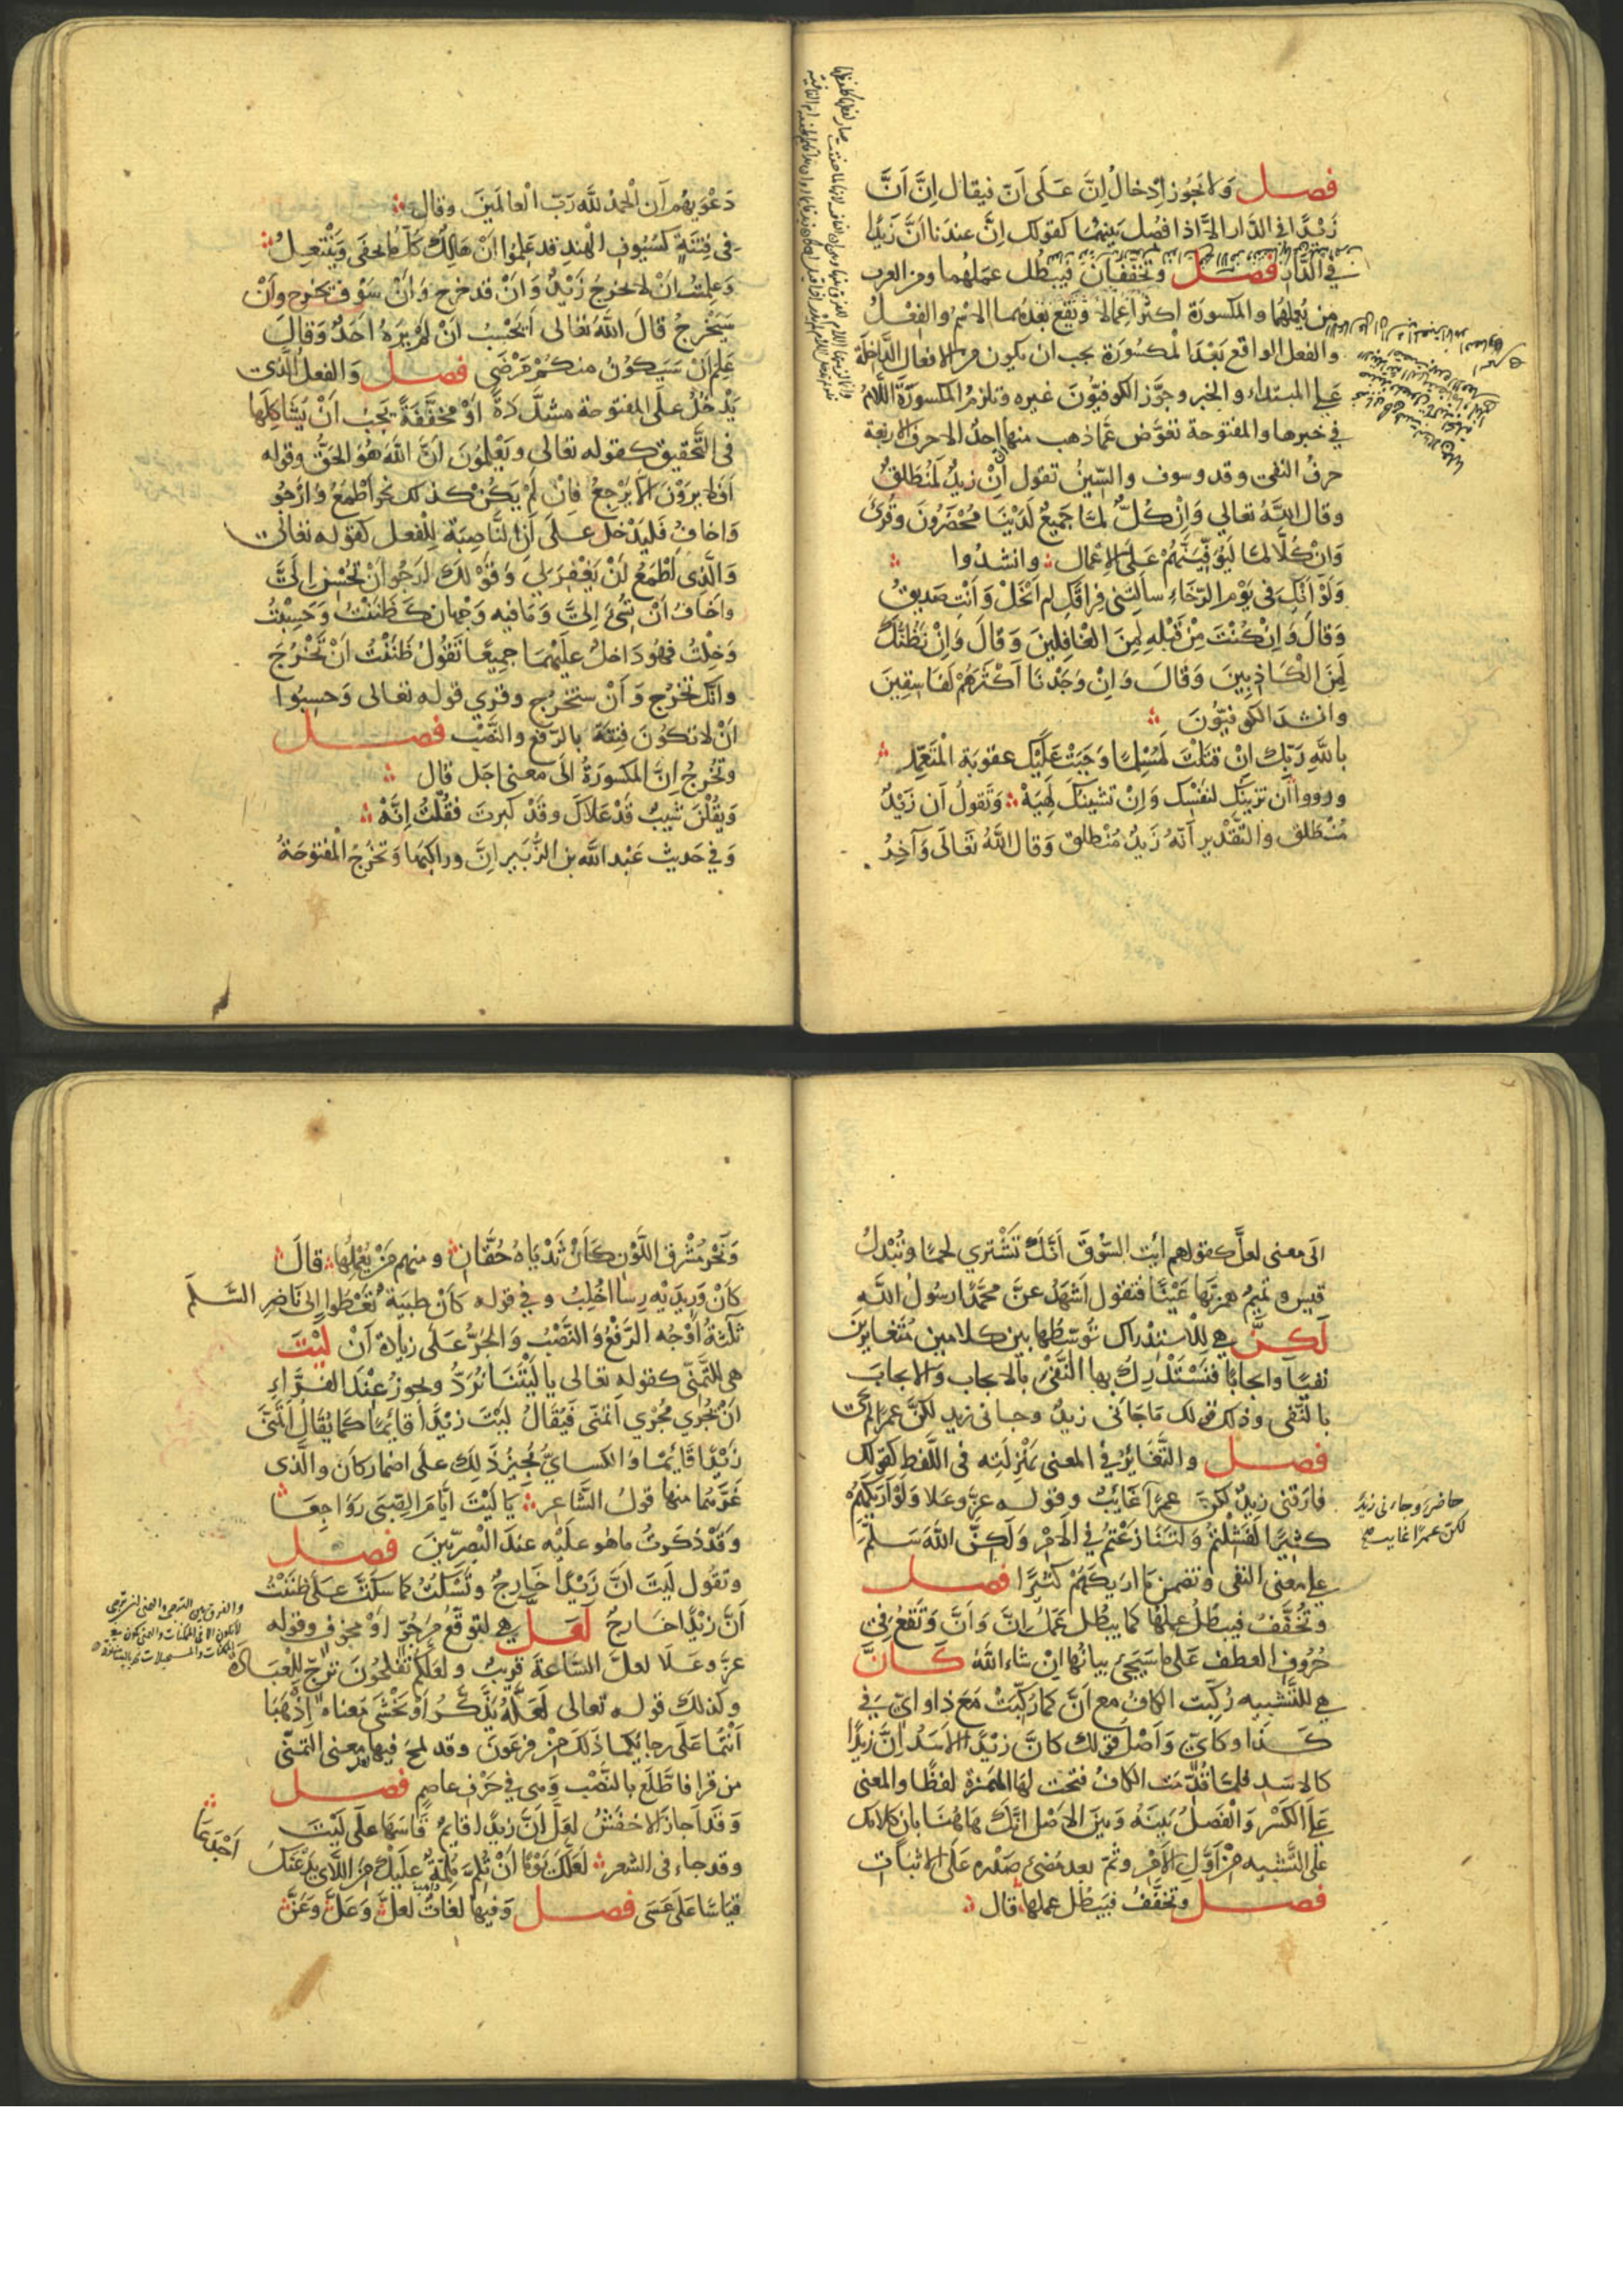 فصل ولا يجوز إدخالُ إِنَّ عَلَى أَنّ فيقال إِنَّ أَنَّ
زَيْدًا في الدَّار إلاَّ اذا فُصل بَينهُما كقولك اِنَّ عندَنا انَّ زَيدًا
في الدَّار فصل وتُخفّفان فيبطُل عمَلهُما ومن العرب
من يُعملهُما والمكسورَة اكثرُ اِعمالا وَيَقَع بَعْدهُما الاسْم والفِعْلُ
والفعل الواقع بَعْدَ المكسُورَة يجب ان يكون من الافعال الدَّاخلَة
على المبتداء والخبر وجوَّز الكوفيُّونَ غيره وتلزمُ المكسورَةَ اللَّامُ
في خبرها والمفتوحة تعوَّض عَمَّا ذهب منها احدُ الاحرف الاربعة
حرفُ النفى وقد وسوف والسِّينُ تقول اِنْ زيدٌ لَمُنْطَلقٌ
وقال اللّهُ تعالي وَاِنْ كُلٌّ لمَّا جَميعٌ لَدَيْنَا مُحْضَرُونَ وقُرئَ
وَانْ كُلًّا لمَا لَيُوَفِّيَنَّهُمْ عَلَى الاِعْمال وانشدُوا
وَلَوْ أنَّكِ فى يَوْم الرّخَاءِ سألتنى فِراقَكِ لم اَبْخَلْ وَاَنْتِ صَديقُ
وَقالَ وَاِنْ كُنْتَ مِنْ قَبْلِهِ لَمِنَ الغْافِلينَ وَقالَ وَاِنْ نَظُنُّكَ
لَمِنَ الْكَاذِبينَ وَقالَ وَاِنْ وَجَدْنَا اَكْثَرَهُمْ لَفَاسِقِينَ
وانشدَ الكوفيّونَ
باللّهِ رَبّكَ اِنْ قَتَلْتَ لَمُسْلِمًا وَجَبَتْ عَلَيْكَ عقوبَة المْتعَمِّدِ
ورووا اِنْ تزينك لنفْسُك وَاِنْ تشينكَ لَهِيَهْ وَتَقولُ اَن زَيْدٌ
مُنْطلق والتَّقْدير اَنّهُ زَيدٌ مُنْطلقٌ وَقالَ اللَّهُ تَعَالَى وَآخِرُ
دَعْوَيهُمْ اَنِ الْحَمْدُ للّه رَبّ الْعالَمينَ وقال
فى فِتْيَةٍ كَسُيُوفِ الْهِندِ قد عَلِمُوا اَنْ هَالِكٌ كُلُّ مَن يحْفَى وَيَنْتَعِلُ
وَعلِمْتُ اَنْ لا يخرجُ زَيْدٌ وَاَنْ قد خرج وَاَنْ سَوْفَ يخرج وَاَنْ
سَيَخْرجُ قالَ اللّهُ تعَالى اَيَحْسَبُ اَنْ لَمْ يَرَهُ اَحَدٌ وَقالَ
عَلِمَ اَنْ سَيَكُونُ منكمْ مَرْضَى فصل وَالفعلُ الَّذى
يَدْخُلُ علَى المفتوحة مشدَّدَةً اَوْ مخفَّفَةً يَجبُ اَنْ يُشَاكِلَها
فى التَّحقيق كقوله تعالى وَيَعْلَمُونَ اَنَّ اللّهَ هُوَ الحقُّ وقوله
افَلا يروَنَ اَلاَّ يَرْجِعُ فَاِنْ لَمْ يَكُنْ كذلك نحو اَطْمَعُ وَاَرْجُو
وَاخافُ فَليَدْخل علَى اَن النَّاصِبَة لِلْفعل كقوله تعالى
وَالَّذِى اَطْمَعُ اَنْ يَغْفِرَ لي وَقَوْلكَ اَرجُو اَنْ تُحْسِنَ اِلَىَّ
واَخَافُ اَنْ تُسِئَ اِلَىَّ وَمَا فيه وَجهان كَظَنَنْتُ وَحَسِبْتُ
وَخِلْتُ فهُو دَاخلٌ عليْهمَا جميعًا تَقُولُ ظَنَنْتُ اَنْ تَخْرُجَ
وانَّكَ تخْرُج وَاَنْ ستخرُج وقرئ قوله تعالى وَحسِبُوا
اَنْ لا تكونَ فِتْنَةٌ بالرّفع والنَّصْب فصل
وتخرجُ اِنَّ المكسورَةُ الَى معنى اجَل قال
وَيَقُلْنَ شَيبٌ قَدْ عَلاَكَ وقَدْ كبرتَ فقُلْتُ اِنَّهْ
وَفي حَديث عَبْد اللّه بن الزُّبَير اِنَّ وراكبَها وَتخرُجُ المْفتوحَةُ
الَى معنى لعلَّ كقولهم اَيت السّوقَ اَنَّكَ تَشْتري لحمًا وتُبْدلُ
قيس وتميمٌ همزتهَا عَيْنًا فتقول اَشْهَدُ عنَّ محمَّدًا رسُولُ اللَّه
لكنَّ هي للاستدْراك تُوسّطُها بين كلامين مُتغايرَيْن
نفيًا وايجابًا فتَسْتَدْرِكُ بها النَّفْىَ بالايجاب وَالايجابَ
بالنّفى وذلك قولك مَا جَاءَنى زيدٌ وجانى زيد لكنَّ عمرًا لم يجئ
فصل والتَّغَايُرُ في المعنى بمَنْزلَته فى اللَّفظ كقولك
فارَقنى زيدٌ لكنَّ عمرًا حَاضرٌ وجاءَنى زيدٌ
لكنّ عمرًا غايب صح
غَائبٌ وقوله عزَّ وعلا وَلَوْ اَرَيكَهُمْ
كثيرًا لفَشِلْتُمْ وَلَتَنَازَعْتُمْ في الاَمْرِ وَلَكِنَّ اللّهَ سَلَّمَ
على معنى النفى وتضمن مَا ارَيكَهُمْ كَثيرًا فصل
وتُخفَّفُ فيبطُلُ عملها كما يبطُل عَمَلُ اِنَّ وَاَنَّ وَتَقَعُ في
حُرُوف العطف عَلى ما سَيَجِئُ بيانُها اِنْ شاءَ اللّهُ كَانَّ
هي للتَّشبيه رُكّبَت الكافُ مع اَنَّ كمَا رُكّبَتْ مَعَ ذا واىّ في
كَذا وكايّ وَاصْل قولك كانَّ زيْدًا الاسَدُ اِنَّ زيْدًا
كالاسَد فلمَّا قُدّمَت الكافُ فتحَت لهَا الهَمزة لفظًا والمعنى
علَى الكَسْر وَالْفصلُ بَيْنَهُ وَبينَ الاَصْل انَّكَ هَا هُنَا بَانٍ كلامَك
على التَّشبيه منْ اَوَّلِ الاَمْر وثمَّ بعد مُضىّ صَدْره عَلى الاثبات
فصل وتخفَّفُ فيَبطُل عملها قال
وَنَحْر مُشْرق اللَّوْن كَاَنْ ثَدْيَاهُ حُقَّانِ ومنهم مَنْ يُعْملُها قالَ
كَاَنْ وَريدَيْه رِشَاا خُلبُ وفي قوله كَاَنْ ظبيَة تَعْطُوا اِلى نَاضِر السَّلَمْ
ثلثةُ اَوْجُه الرَّفْعُ وَالنَّصْبُ وَالجَرُّ عَلَى زيادة اَنْ لَيْتَ
هى للتّمنّى كقولهِ تعَالى يا لَيْتَنَا نُرَدُّ ويجوزُ عنْدَ الفرَّاءِ
اَنْ يُجْري مُجْرَى اَتَمنَّى فَيُقَالُ لَيْتَ زيْدًا قائِمًا كَمَا يُقَالُ اَتَمنَّى
زَيْدًا قائِمًا وَالكسائيُّ يُجيزُ ذَلِكَ علَى اضمار كان والَّذى
غَرَّهما منها قولُ الشَّاعر يَا لَيْتَ ايَّامَ الصّبَى رَوَاجعَا
وَقَدْ ذَكَرتُ ما هُوَ علَيْه عندَ البْصريّينَ فصل
وتقُول لَيتَ اَنَّ زيْدًا خَارجٌ وتَسْكُتُ كما سكَتَّ عَلَى ظنَنْتُ
اَنَّ زيْدًا خارجٌ لَعَلَّ هي لتوَقّع مَرْجُوّ اوْ مخوف وقوله
عزَّ وعَلا لعلَّ السَّاعةَ قريبٌ ولعَلَّكُمْ تفْلحُونَ ترجّ للعبَاد
وكذلكَ قوله تعالى لَعَلَّهُ يَتَذَكَّرُ اَوْ يَخْشَى مَعناه اِذْهَبَا
اَنْتُمَا عَلَى رجائكمَا ذَلكَ منْ فرعَونَ وقد لمحَ فيها معنى التمنّى
من قرا فاطّلعَ بالنَّصْب وَهى في حَرْف عاصم فصل
وَقَد اَجازَ الاخفَشُ لعَلَّ اَنَّ زيدًا قايمٌ قاسَهَا علَى لَيْتَ
وقد جاءَ فى الشعر لَعَلَّكَ يَوْمًا اَنْ تُلِمَّ مُلِمَّةٌ علَيْكَ منَ اللَّاى يَدَعْنَكَ اَجْدَعَا
قيَاسًا عَلَى عَسَى فصل وَفيها لغاتٌ لعلَّ وَعَلَّ وَعَنَّ